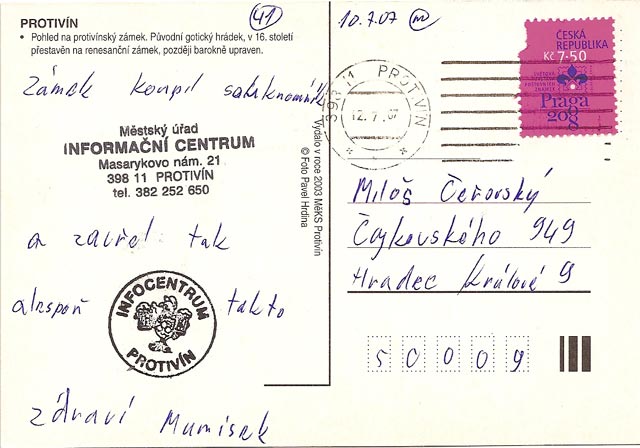 PROTIVÍN
• Pohled na protivínský zámek. Původní gotický hrádek, v 16. století
přestavěn na renesanční zámek, později barokně upraven.
41
Zámek koupil
Městský úřad
INFORMAČNÍ CENTRUM
Masarykovo nám. 21
398 11 PROTIVÍN
tel. 382 252 650
a zavřel tak
alespoň takto
INFOCENTRUM
PROTIVÍN
zdraví Mumisek
Vydalo v roce 2003 MěKS Protivín
© Foto Pavel Hrdina
10.7.07
398 11 PROTIVÍN
12.7.07
ČESKÁ
REPUBLIKA
Kč 7·50
Praga
2008
Miloš Čeřovský
Čajkovského 949
Hradec Králové 9
50009